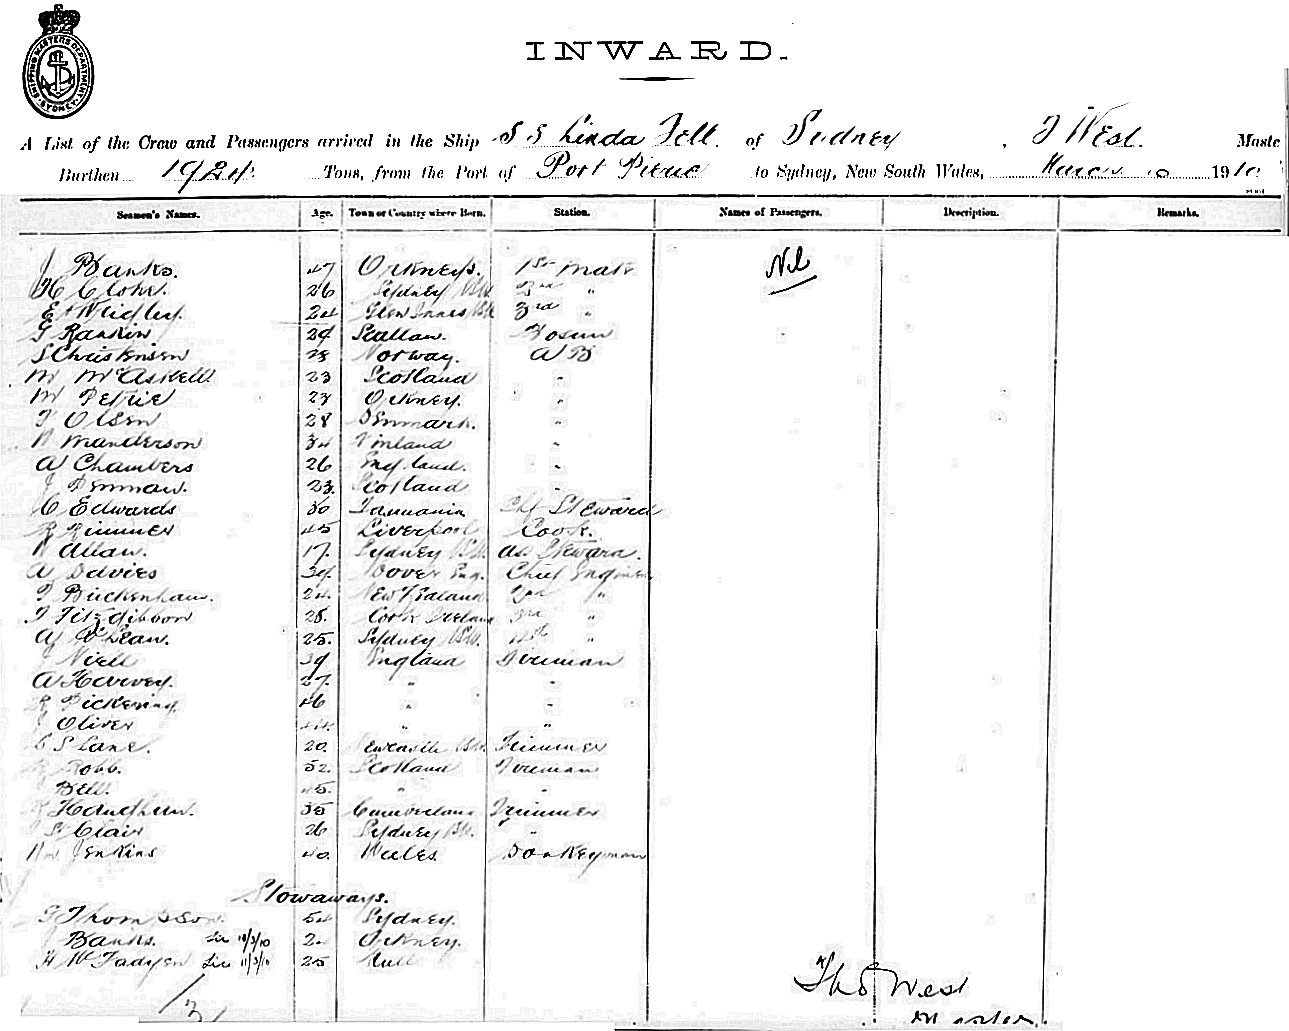 SHIPPING MASTERS DEPARTMENT SYDNEY
INWARD.
A List of the Crew and Passengers arrived in the Ship S S Linda Fell of Sydney, T West Maste
Burthen 1924 Tons, from the Port of Port Pirie to Sydney, New South Wales, March 1910
Seamen's Names. Age. Town or Country where Born. Station. Names of Passengers. Description. Remarks.
J Banks. 47 Orkneys. 1st Mate Nil
26 Sydney NSW 2nd "
24 Glen Innes NSW 3rd "
G Rankin 29 Bosun
S Christensen 28 Norway. A B
M McAskell 23 Scotland "
M Petrie 23 Orkney. "
Olsen 28 Denmark. "
Manderson 34 Finland "
A Chambers 26 England. "
J Penman. 23 Scotland "
C Edwards 30 Tasmania Chf Steward
R Rimmer 45 Liverpool Cook.
Allan. 17 Sydney NSW. as. Steward.
A Davies 39 Dover Eng. Chief Engineer
Buckenham. 24 New Zealand 2nd "
T Fitzgibbon 28. Cork Ireland 3rd "
A McLean. 25. Sydney NSW. 4th "
Niell 39 England Fireman
A Harvey. 27. " "
R Pickering 46 " "
J Oliver 44 " "
C S Lane. 20. Newcastle NSW. Trimmer
Robb. 52. Scotland Fireman
Bell. 45. " "
R 35 Cumberland Trimmer
St Clair 26 Sydney NSW. "
Wm Jenkins 40. Wales Donkeyman
Stowaways.
Thompson. 54 Sydney.
J Banks. 10/3/10 Orkney.
H McFadyen 11/3/10 25 Mull
31
Thos West
Master.